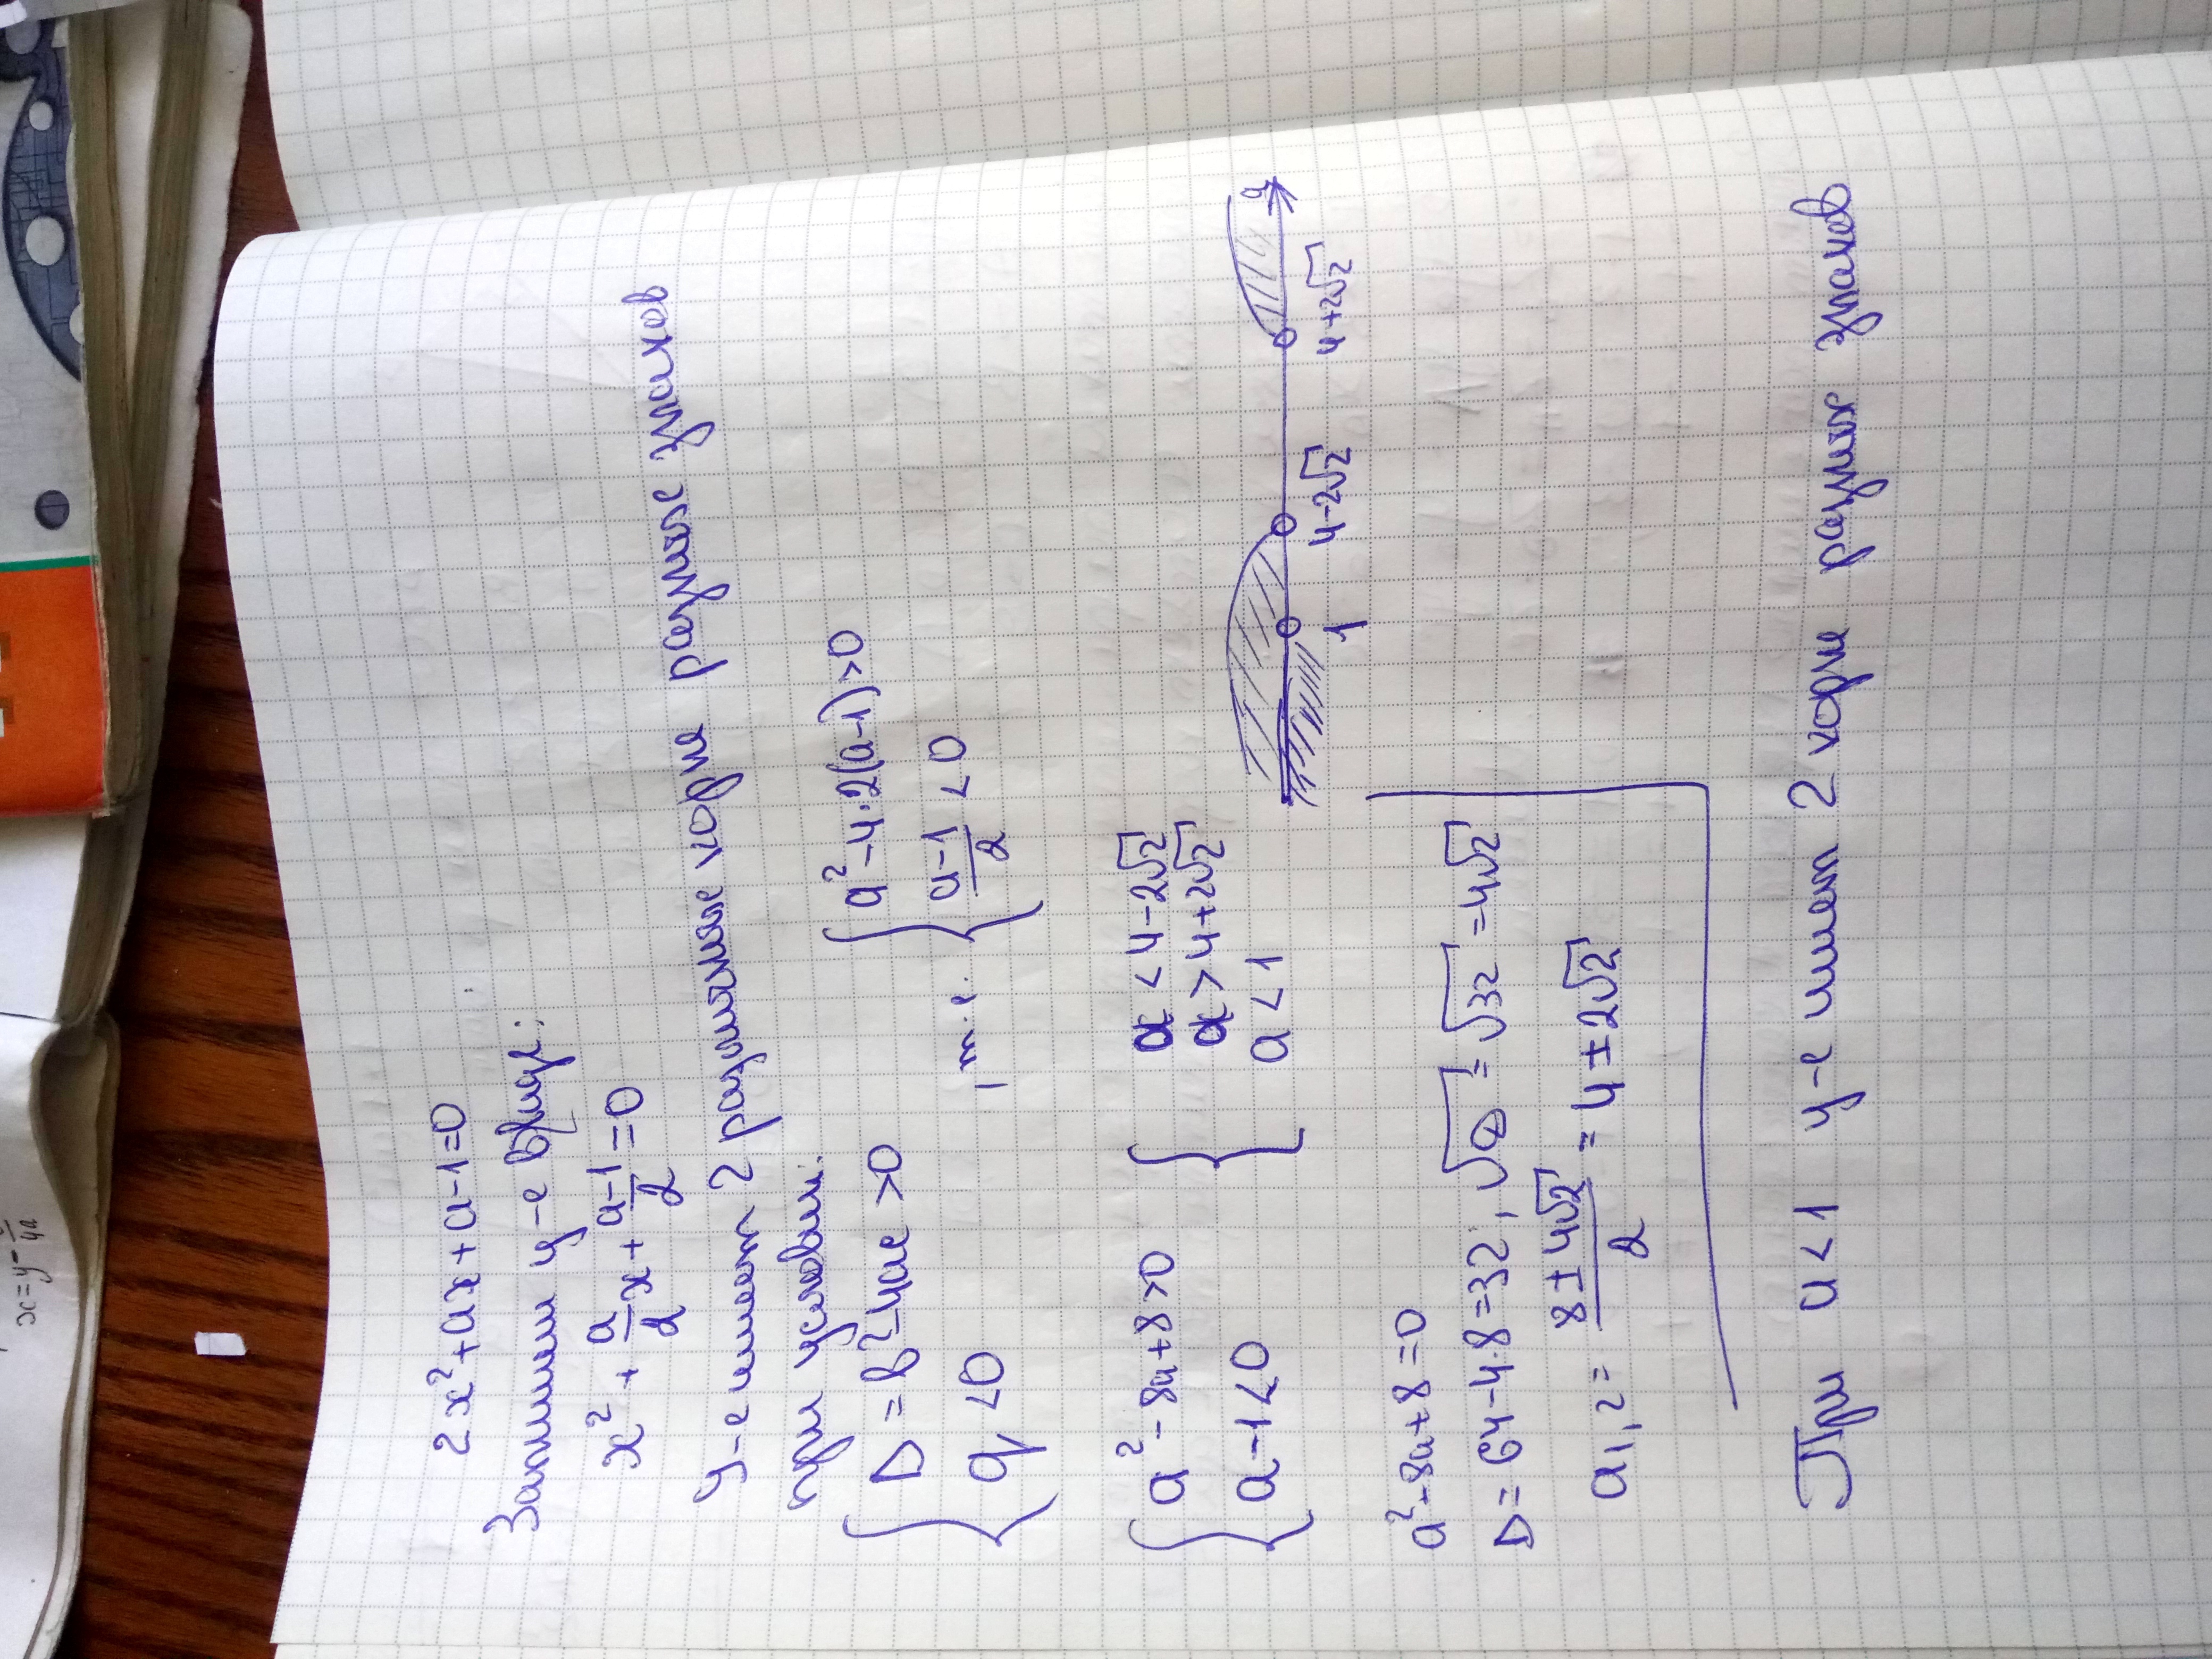 2x²+ax+a-1=0
Запишем у-е в виде:
x² + a/2 x + a-1/2 =0
у-е имеет 2 различные корня разных знаков
при условии:
{ D = b²-4ac >0
q <0
, т.е. { a²-4·2(a-1)>0
a-1/2 <0
{ a²-8a+8>0
a-1<0
{ a < 4-2√2
a > 4+2√2
a < 1
1
4-2√2
4+2√2
a
a²-8a+8=0
D = 64-4·8=32, √D = √32 = 4√2
a1,2 = 8±4√2/2 = 4±2√2
При a<1 у-е имеет 2 корня разных знаков
x=y-